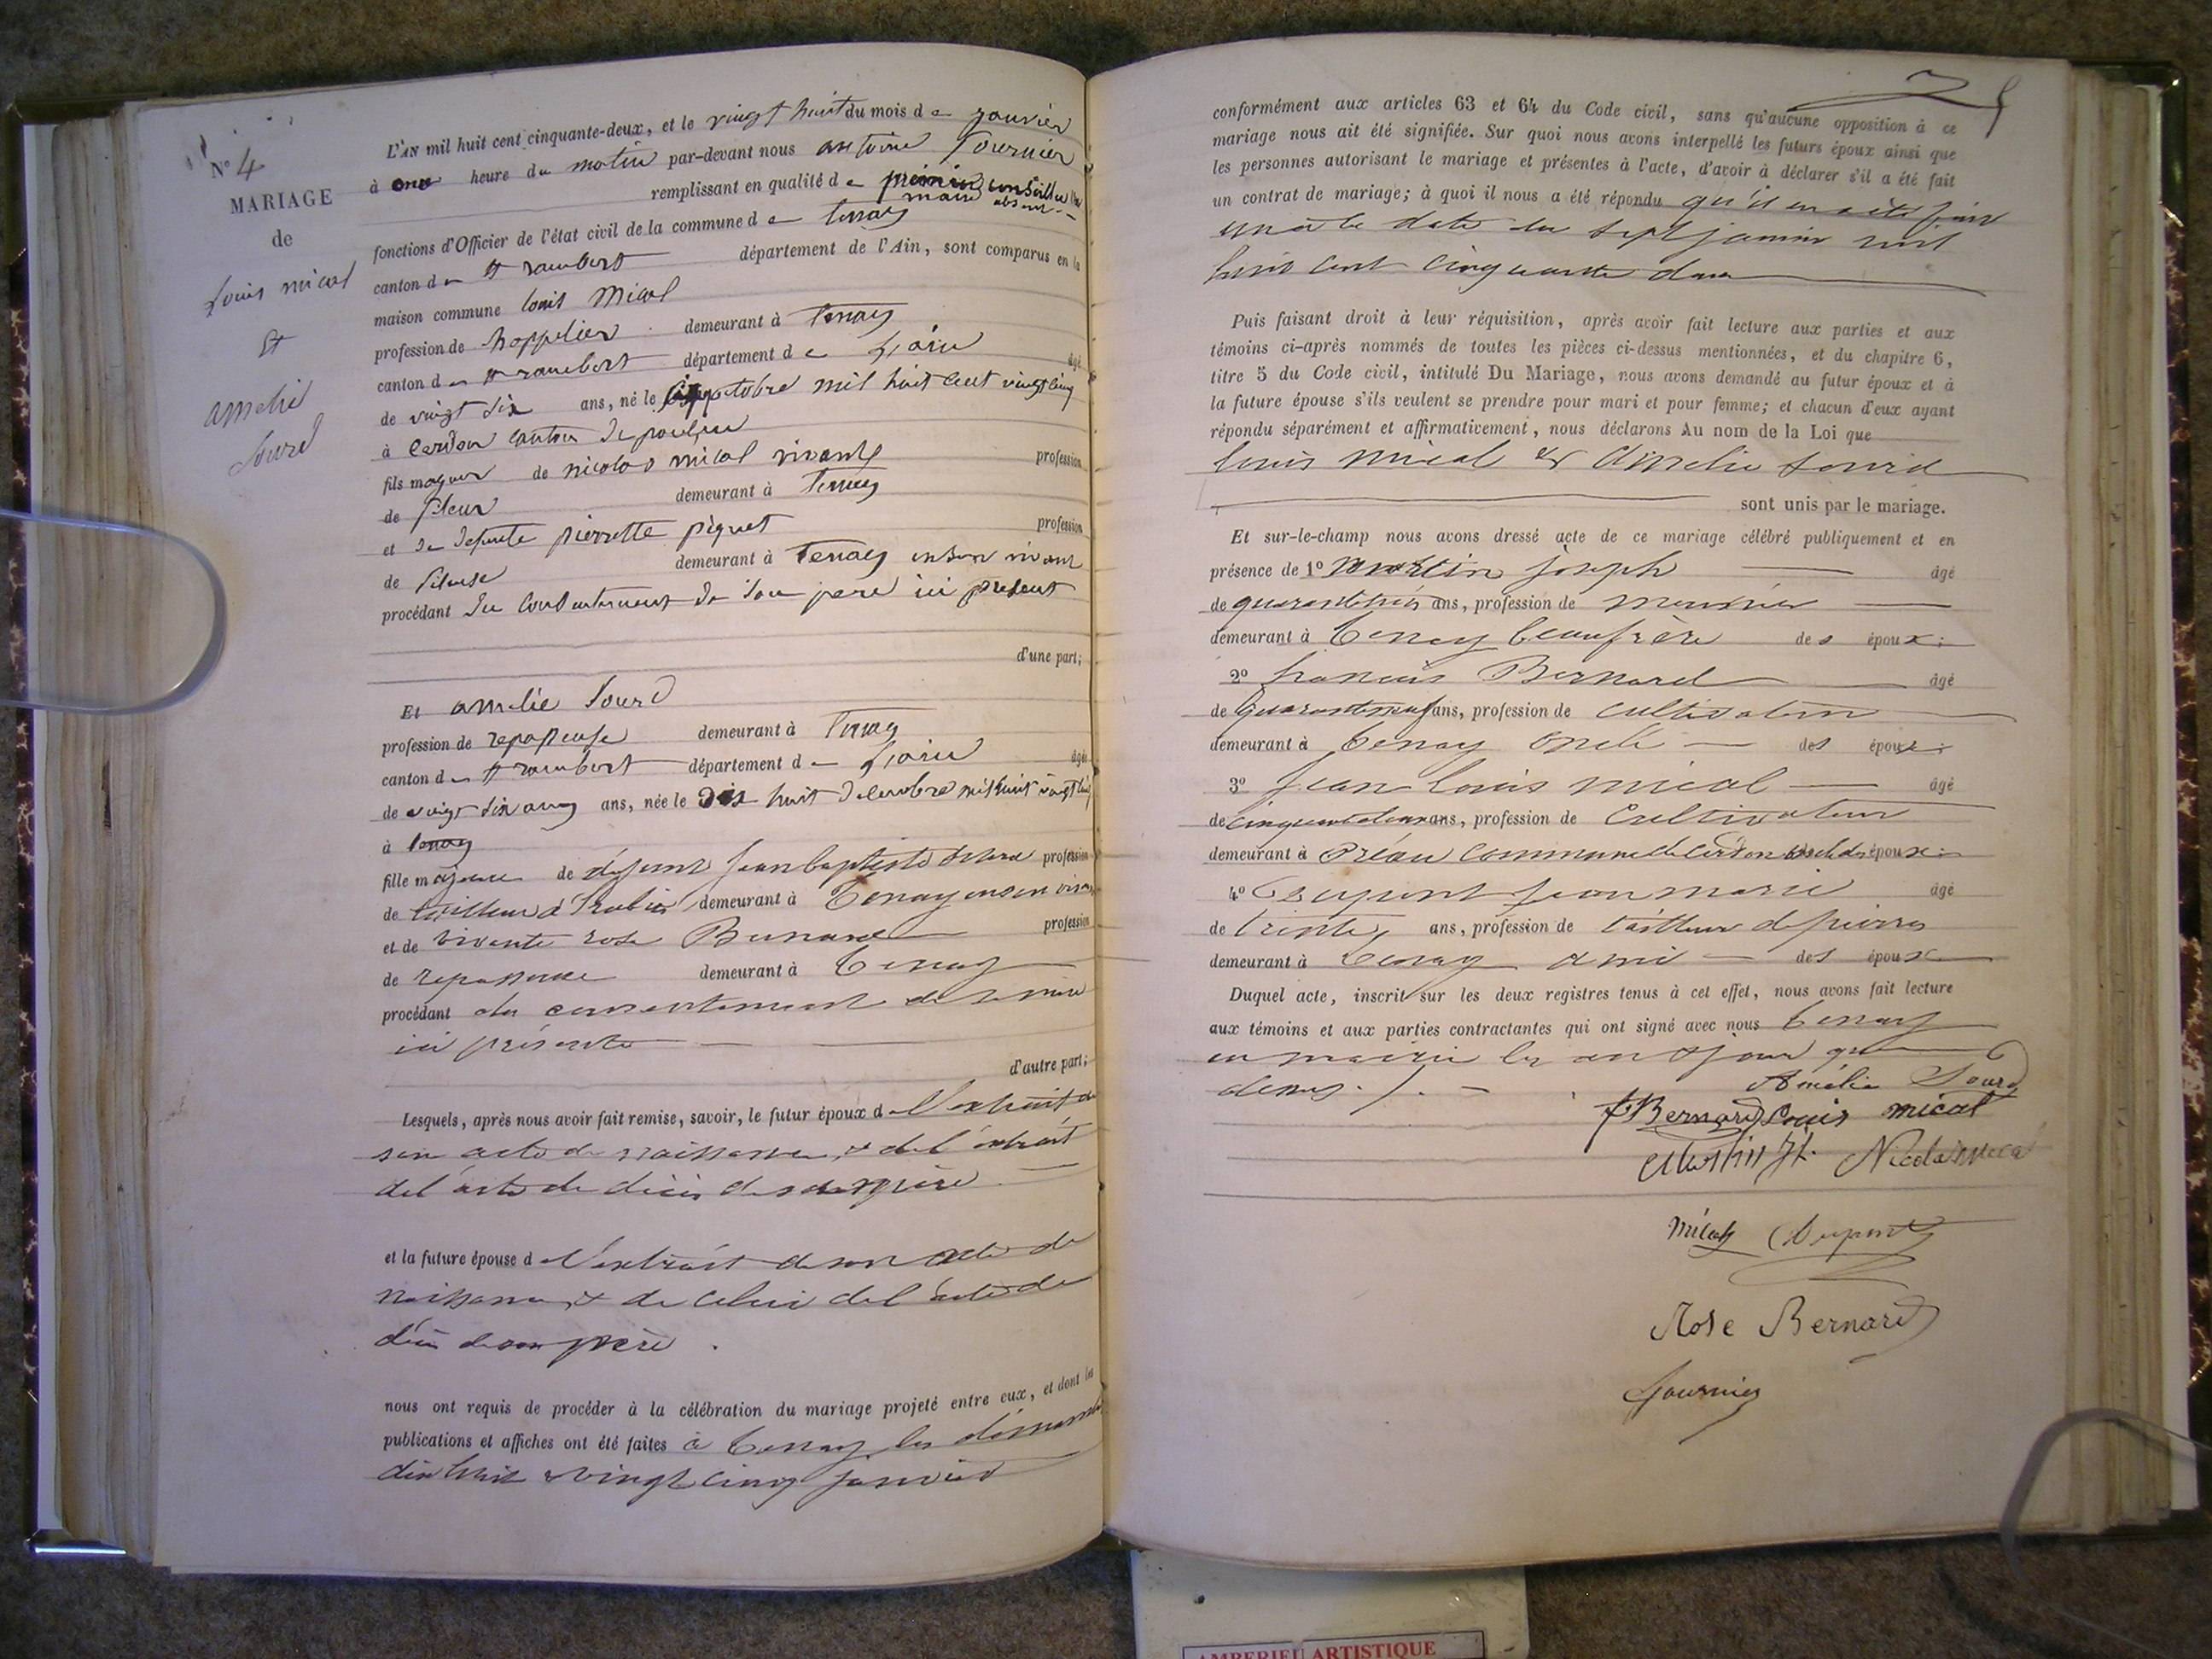 N° 4
MARIAGE
de
Louis mical
et
amelie
Sourd
L'AN mil huit cent cinquante-deux, et le vingt huit du mois de janvier
à onze heure du matin par-devant nous antoine Fournier
remplissant en qualité de premier conseiller le
maire absent
fonctions d'Officier de l'état civil de la commune de tenay
canton de st rambert département de l'Ain, sont comparus en la
maison commune louis Mical
profession de demeurant à Tenay
canton de st rambert département de L'ain âgé
de vingt six ans, né le octobre mil huit cent vingt cinq
à Cerdon canton de poncin
fils majeur de nicolas mical vivant profession
de fileur demeurant à Tenay
et de defunte pierrette piquet profession
de fileuse demeurant à Tenay en son vivant
procédant du consentement de son pere ici present
d'une part;
Et amelie Sourd
profession de repasseuse demeurant à Tenay
canton de st rambert département de L'ain âgée
de vingt six ans ans, née le dix huit decembre mil huit vingt cinq
à tenay
fille majeure de défunt jean baptiste profession
de tailleur d'habits demeurant à Tenay en son vivant
et de vivante rose Bernard profession
de repasseuse demeurant à Tenay
procédant du consentement de sa mère
ici présente
d'autre part;
Lesquels, après nous avoir fait remise, savoir, le futur époux de l'extrait de
son acte de naissance, & de l'extrait
de l'acte de décès de sa mère
et la future épouse de l'extrait de son acte de
naissance, & de celui de l'acte de
décès de son père.
nous ont requis de procéder à la célébration du mariage projeté entre eux, et dont les
publications et affiches ont été faites à Tenay les dimanches
dix huit & vingt cinq janvier
conformément aux articles 63 et 64 du Code civil, sans qu'aucune opposition à ce
mariage nous ait été signifiée. Sur quoi nous avons interpellé les futurs époux ainsi que
les personnes autorisant le mariage et présentes à l'acte, d'avoir à déclarer s'il a été fait
un contrat de mariage; à quoi il nous a été répondu qu'il en a été fait
un à la date du sept janvier mil
huit cent cinquante deux
Puis faisant droit à leur réquisition, après avoir fait lecture aux parties et aux
témoins ci-après nommés de toutes les pièces ci-dessus mentionnées, et du chapitre 6,
titre 5 du Code civil, intitulé Du Mariage, nous avons demandé au futur époux et à
la future épouse s'ils veulent se prendre pour mari et pour femme; et chacun d'eux ayant
répondu séparément et affirmativement, nous déclarons Au nom de la Loi que
louis mical & Amelie Sourd
sont unis par le mariage.
Et sur-le-champ nous avons dressé acte de ce mariage célébré publiquement et en
présence de 1° Martin joseph âgé
de ans, profession de
demeurant à Tenay beaufrère des époux:
2° francois Bernard âgé
de quaranteneuf ans, profession de cultivateur
demeurant à Tenay oncle des époux:
3° jean louis mical âgé
de cinquantedeux ans, profession de Cultivateur
demeurant à Préau commune de Cerdon oncle des époux:
4° Dupont jean marie âgé
de trente, ans, profession de tailleur de pierres
demeurant à Tenay ami des époux
Duquel acte, inscrit sur les deux registres tenus à cet effet, nous avons fait lecture
aux témoins et aux parties contractantes qui ont signé avec nous Tenay
en mairie les an & jour que
dessus./.
Amélie Sourd
f. Bernard Louis mical
Martin Jh. Nicolas mical
Mical Dupont
Rose Bernard
fournier
AMBERIEU ARTISTIQUE